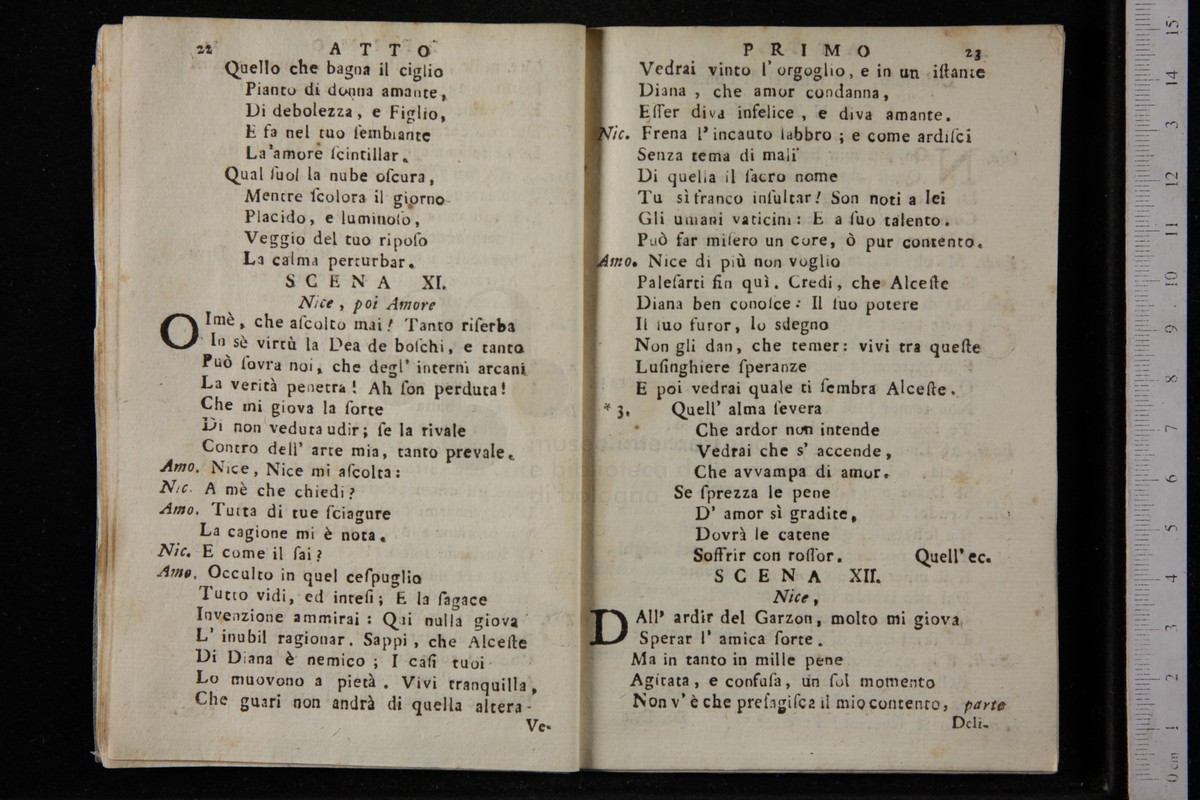 22 ATTO
Quello che bagna il ciglio
Pianto di donna amante,
Di debolezza, e Figlio,
E fa nel tuo ſembiante
La'amore ſcintillar.
Qual ſuol la nube oſcura,
Mentre ſcolora il giorno
Placido, e luminoſo,
Veggio del tuo ripoſo
La calma perturbar.
SCENA XI.
Nice, poi Amore
OImè, che aſcolto mai! Tanto riſerba
In sè virtù la Dea de boſchi, e tanto
Può ſovra noi, che degl' interni arcani
La verità penetra! Ah ſon perduta!
Che mi giova la ſorte
Di non veduta udir; ſe la rivale
Contro dell' arte mia, tanto prevale.
Amo. Nice, Nice mi aſcolta:
Nic. A mè che chiedi?
Amo. Tutta di tue ſciagure
La cagione mi è nota.
Nic. E come il ſai?
Amo. Occulto in quel ceſpuglio
Tutto vidi, ed inteſi; E la ſagace
Invenzione ammirai: Qui nulla giova
L' inubil ragionar. Sappi, che Alceſte
Di Diana è nemico; I caſi tuoi
Lo muovono a pietà. Vivi tranquilla,
Che guari non andrà di quella altera
Ve-
PRIMO 23
Vedrai vinto l' orgoglio, e in un iſtante
Diana, che amor condanna,
Eſſer diva infelice, e diva amante.
Nic. Frena l' incauto labbro; e come ardiſci
Senza tema di mali
Di quella il ſacro nome
Tu sì franco inſultar! Son noti a lei
Gli umani vaticini: E a ſuo talento.
Può far miſero un core, ò pur contento.
Amo. Nice di più non voglio
Paleſarti ſin quì. Credi, che Alceſte
Diana ben conoſce: Il ſuo potere
Il ſuo furor, lo sdegno
Non gli dan, che temer: vivi tra queſte
Luſinghiere ſperanze
E poi vedrai quale ti ſembra Alceſte.
* 3. Quell' alma ſevera
Che ardor non intende
Vedrai che s' accende,
Che avvampa di amor.
Se ſprezza le pene
D' amor sì gradite,
Dovrà le catene
Soffrir con roſſor. Quell' ec.
SCENA XII.
Nice,
DAll' ardir del Garzon, molto mi giova
Sperar l' amica ſorte.
Ma in tanto in mille pene
Agitata, e confuſa, un ſol momento
Non v' è che preſagiſca il mio contento, parte
Deli-